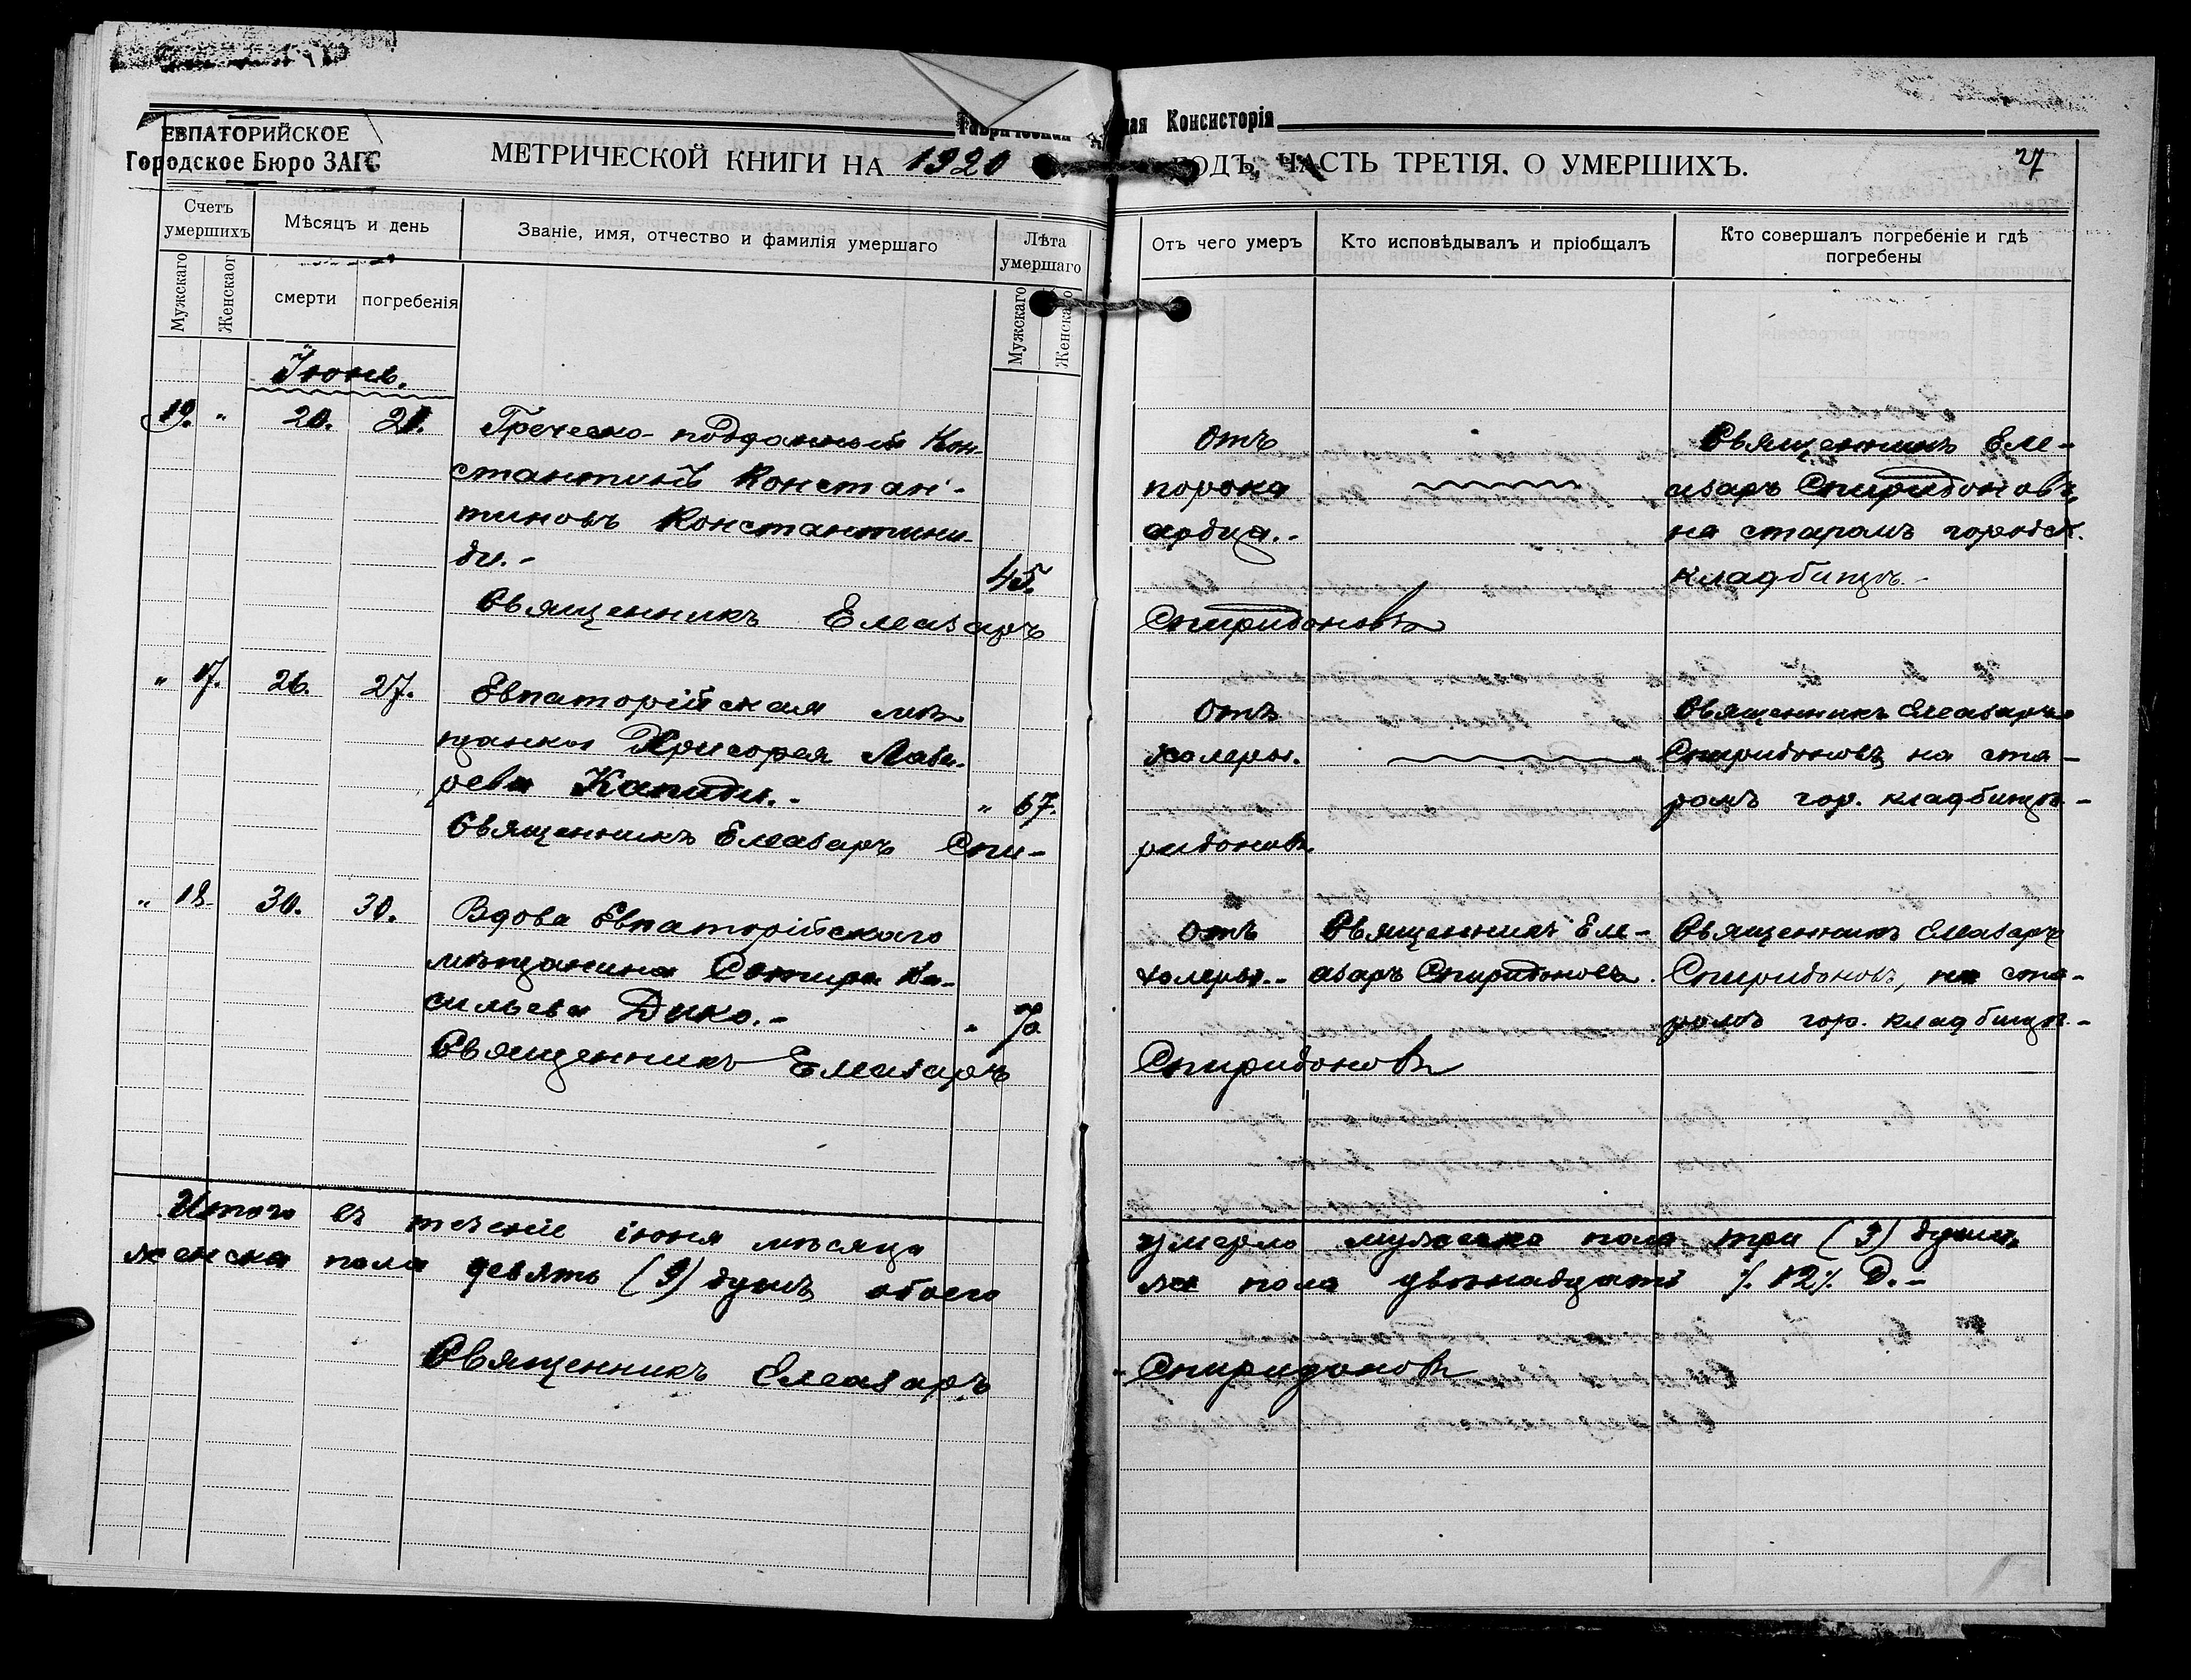 Таврическая Духовная Консисторія
ЕВПАТОРИЙСКОЕ
Городское Бюро ЗАГС
МЕТРИЧЕСКОЙ КНИГИ НА 1920 ГОДЪ, ЧАСТЬ ТРЕТІЯ. О УМЕРШИХЪ.
27
Счетъ умершихъ
Мужскаго
Женскаог
Мѣсяцъ и день
смерти
погребенія
Званіе, имя, отчество и фамилія умершаго
Лѣта умершаго
Мужскаго
Женскаго
Отъ чего умеръ
Кто исповѣдывалъ и пріобщалъ
Кто совершалъ погребеніе и гдѣ
погребены
Іюнь.
19. " 20. 21.
Греческо-подданный Кон-
стантинъ Констан-
тиновъ Константини-
ди.-
45.
Отъ
порока
сердца.-
Священникъ Еле-
азаръ Спиридоновъ,
на старомъ городск.
кладбищѣ.-
Священникъ Елеазаръ Спиридоновъ
" 17. 26. 27.
Евпаторійская мѣ-
щанка Хрисорея Лаза-
рева Капиди.-
" 67.
Отъ
холеры.
Священникъ Елеазаръ
Спиридоновъ на ста-
ромъ гор. кладбищѣ.-
Священникъ Елеазаръ Спи-
ридоновъ
" 18. 30. 30.
Вдова Евпаторійскаго
мѣщанина Сотира Ва-
сильева Дико.-
" 70
Отъ
холеры.-
Священникъ Еле-
азаръ Спиридоновъ.
Священникъ Елеазаръ
Спиридоновъ, на ста-
ромъ гор. кладбищѣ.-
Священникъ Елеазаръ Спиридоновъ
Итого въ теченіе іюня мѣсяца умерло мужеска пола три (3) души,
женска пола девять (9) душъ обоего же пола двѣнадцать /.12/. д.-
Священникъ Елеазаръ Спиридоновъ